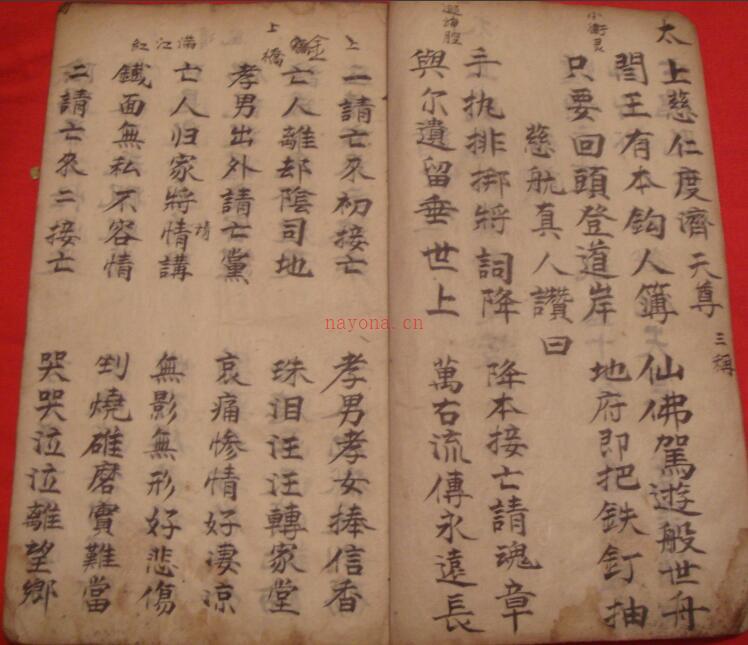 太上慈仁度濟天尊 三稱
小衛灵
閻王有本鈎人簿 仙佛駕遊般世舟
只要回頭登道岸 地府即把鉄釘抽
慈航真人讚曰
腔
手执排挷將詞降 降本接亡請魂章
與尔遺留垂世上 萬右流傳永遠長
上
一請亡來初接亡 孝男孝女捧信香
金橋
亡人離却陰司地 珠泪汪汪轉家堂
上
孝男出外請亡黨 哀痛慘情好凄凉
滿江紅
亡人归家將情講 無影無形好悲傷
情
鐵面無私不容情 剉燒碓磨實難當
二請亡來二接亡 哭哭泣泣離望鄉
nayona.cn